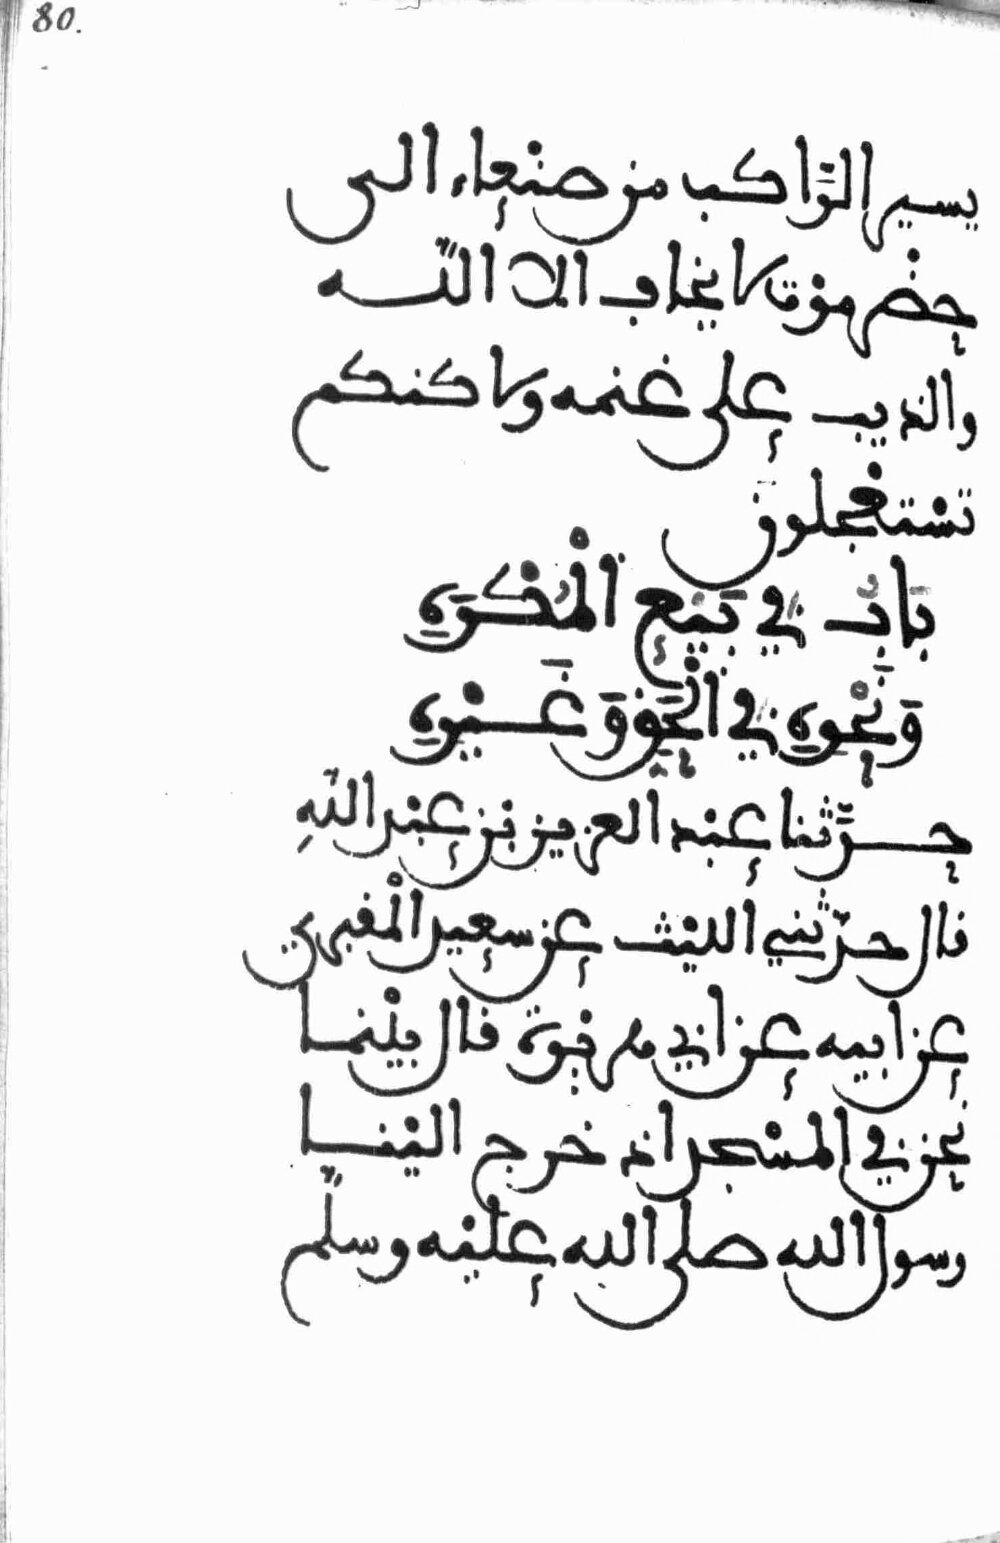 80.
يسير الرَّاكب من صنْعاء الى
حضْرموْت لا يخاف الا اللّه
والذيب على غنمه ولاكنكم
تسْتعْجلون
بَابٌ في بَيْعِ الْمُكْرَهِ
وَنَحْوِهِ في الْحَقِّ وَغَيْرِهِ
حدَّثنا عبْد العزيز بن عبْد اللّهِ
قال حدّثني الليْث عن سعيد الْمقبري
عن ابيه عن ابي هريْرة قال بيْنما
نحن في المسْجد اذ خرج اليْنا
رسول الله صلى الله عليْه وسلّم